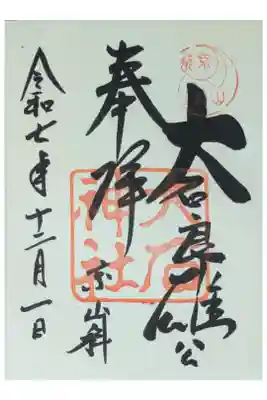 大石良雄公
奉拝
京山科
大石
神社
令和七年十二月一日